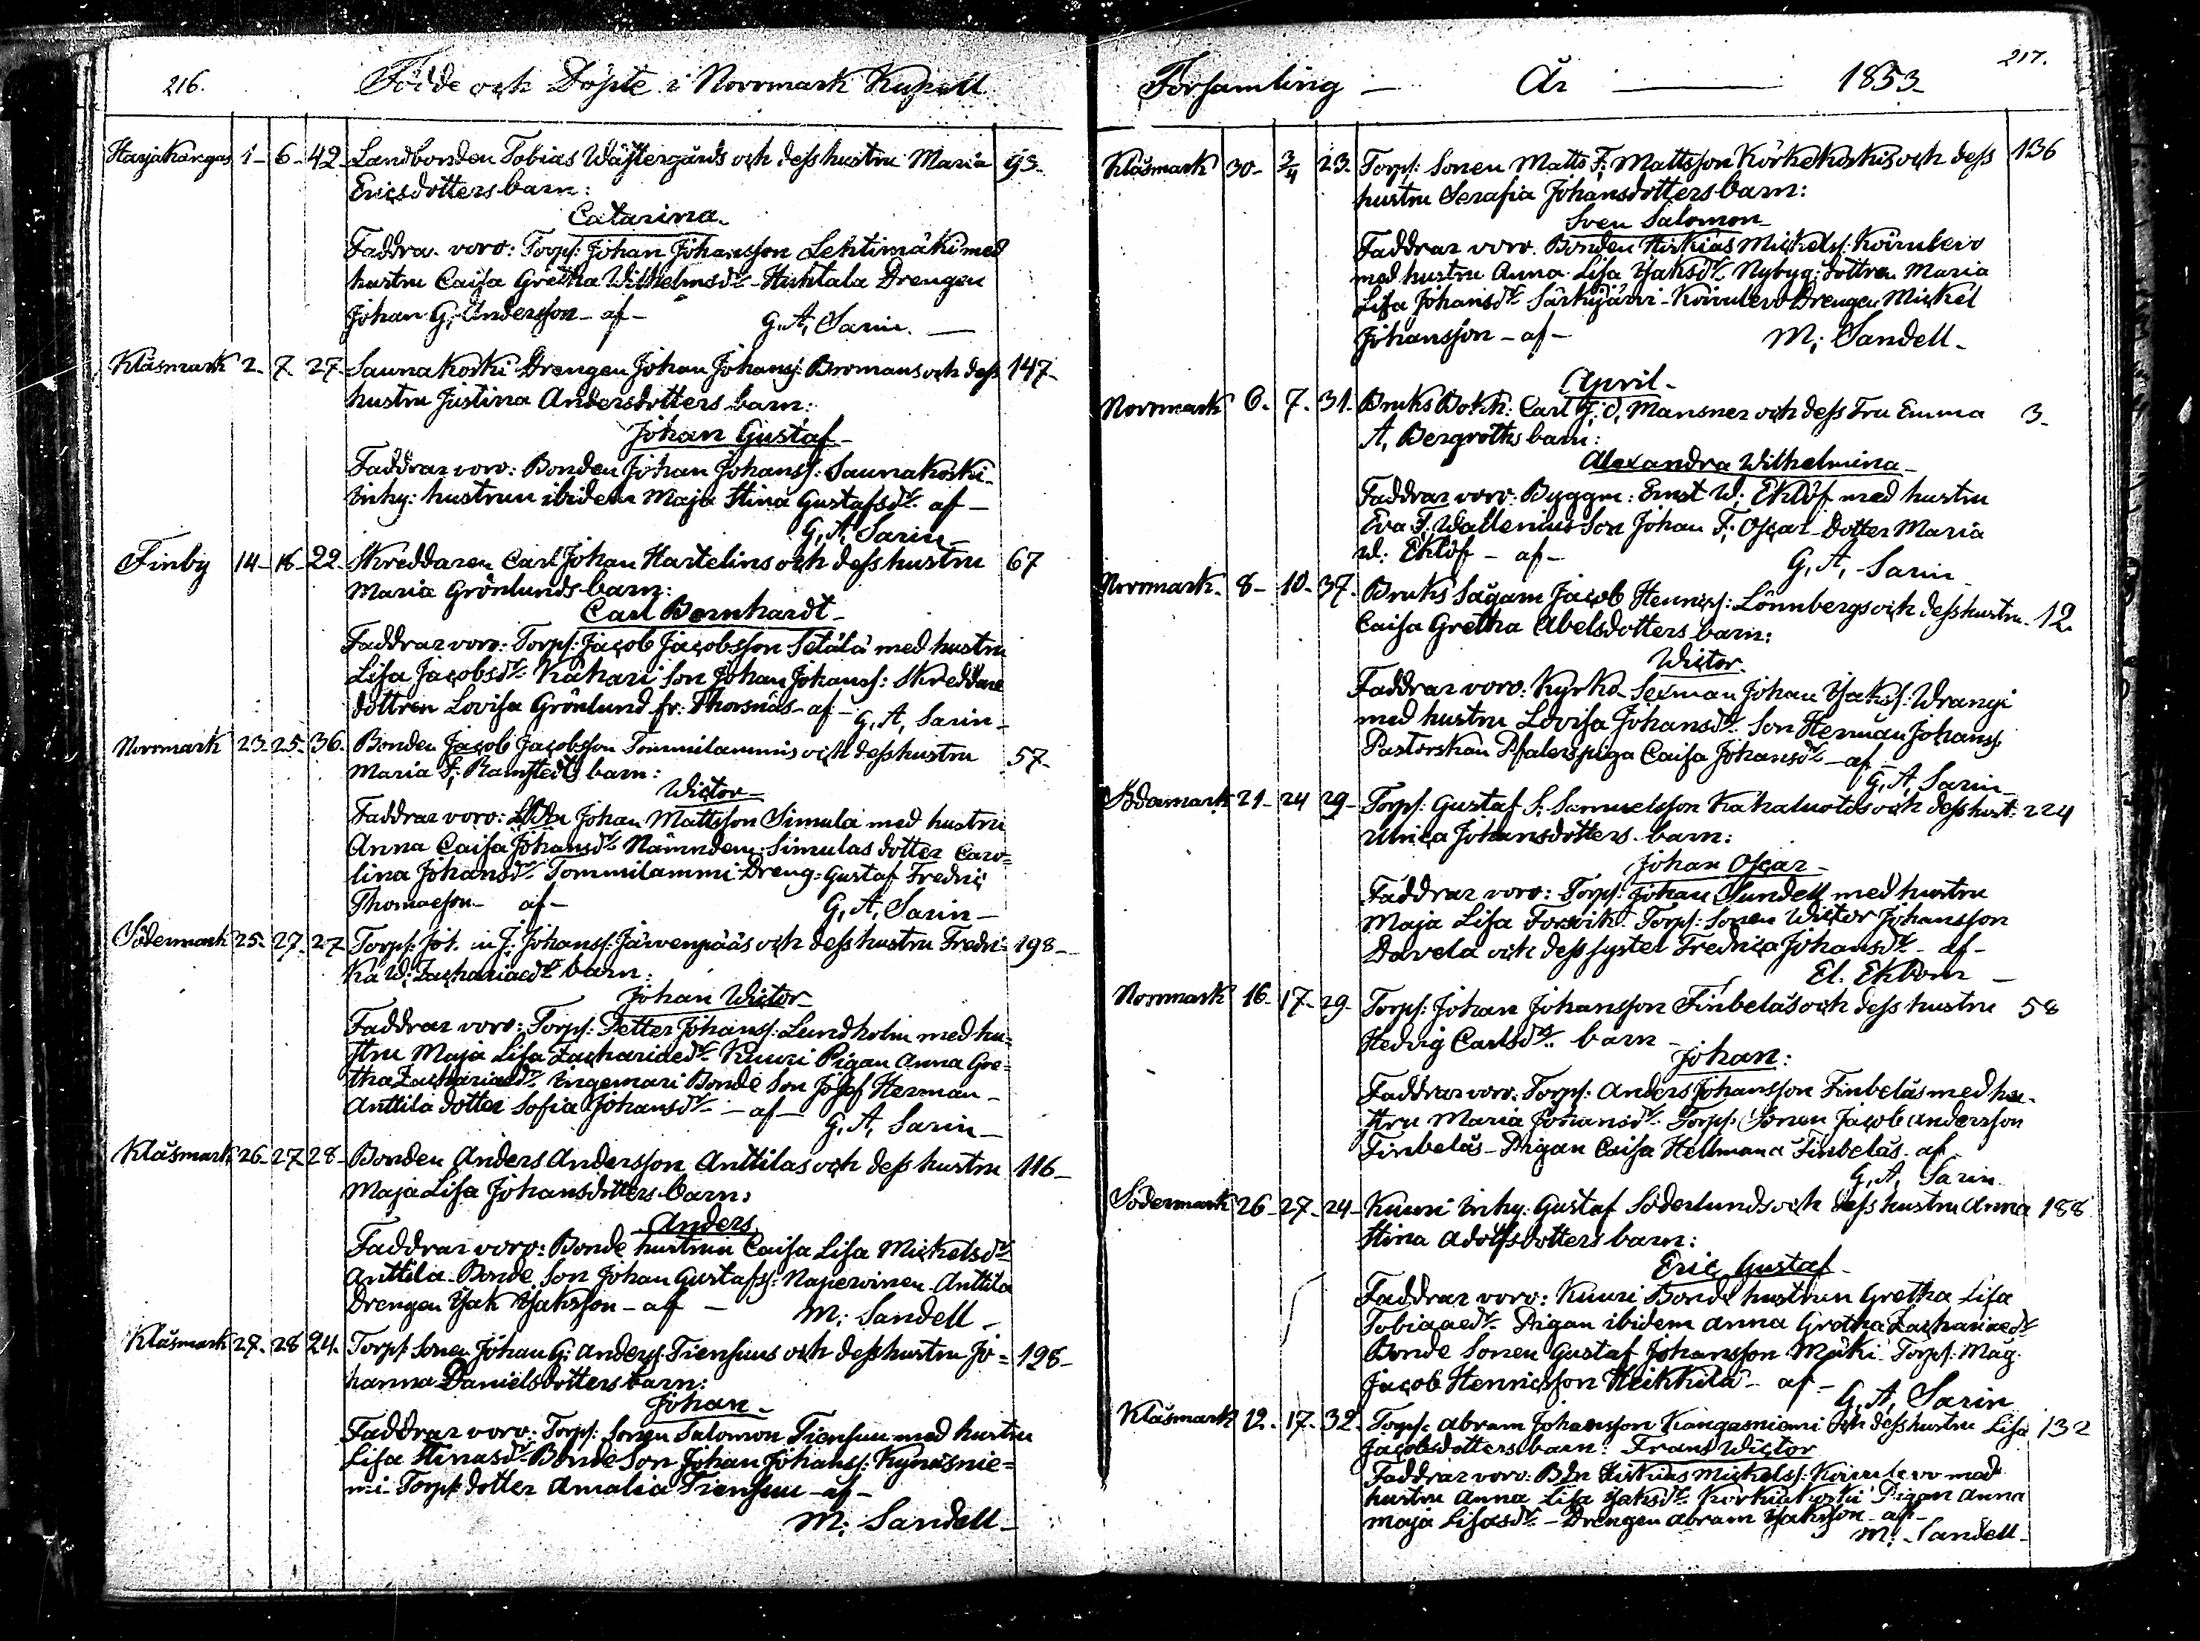 216.
Födde och Döpte i Norrmark Kapell
Harjakangas 1- 6- 42. Landbonden Tobias Wästergårds och dess hustru Maria 93.
Ericsdotters barn:
Catarina.
Faddrar voro: Torp: Johan Johansson Lehtimäki med
hustru Caisa Gretha Wilhelmsdr. Huhtala Drengen
Johan G. Andersson - af -
G. A. Sarin. —
Klåsmark 2. 7. 27. Saunakoski Drengen Johan Johanss: Bromans och dess 147.
hustru Justina Andersdotters barn:
Johan Gustaf
Faddrar voro: Bonden Johan Johanss: Saunakoski
Inhy: hustrun ibidem Maja Stina Gustafsdr. af -
G. A. Sarin
Finby 14- 16- 22. Skreddaren Carl Johan Hartelins och dess hustru 67
Maria Grönlunds barn:
Carl Bernhardt
Faddrar voro: Torp: Jacob Jacobsson Setälä med hustru
Lisa Jacobsdr. Kahari son Johan Johanss: Skreddare
dottren Lovisa Grönlund fr. Thorsnäs - af - G. A. Sarin -
Norrmark 23. 25. 36. Bonden Jacob Jacobsson Tommilammis och dess hustru 57.
Maria S. Ramstedts barn:
Wictor
Faddrar voro: Johan Mattsson Simula med hustru
Anna Caisa Johansdr. Nämndem: Simulas dotter Caro=
lina Johansdr. Tommilammi Dreng: Gustaf Fredric
Thomaeson - af - G. A. Sarin -
Södermark 25. 27. 27 Torp: Joh. Johanss: Järvenpääs och dess hustru Fredri= 198
ka W. Zachariaedr. barn:
Johan Wictor
Faddrar voro: Torp: Petter Johanss: Lundholm med hu=
stru Maja Lisa Zachariaedr. Kuuri Pigan Anna Gre=
tha Zachariaedr. Ingemari Bonde Son Josef Herman
Anttila dotter Sofia Johansdr. - af -
G. A. Sarin -
Klåsmark 26. 27 28. Bonden Anders Andersson Anttilas och dess hustru 116
Maja Lisa Johansdotters barn:
Anders
Faddrar voro: Bonde hustrun Caisa Lisa Mickelsdr.
Anttila. Bonde Son Johan Gustafss: Naperoinen Anttila
Drengen Isak Isaksson - af - M. Sandell -
Klåsmark 27. 28 24. Torp: Sonen Johan G. Anderss: Tiensuus och dess hustru Jo= 198
hanna Danielsdotters barn:
Johan.
Faddrar voro: Torp: Sonen Salomon Tiensuu med hustru
Lisa Stinasdr. Bonde Son Johan Johanss: Kynäsnie=
mi. Torp: dotter Amalia Tiensuu - af -
M. Sandell -
Församling — År — 1853.
217.
Klåsmark 30. 3/4 23. Torp: Sonen Matts F. Mattsson Körkekoskis och dess 136
hustru Serafia Johansdotters barn:
Sven Salomon
Faddrar voro. Bonden Hiskias Mickelss: Koivulevo
med hustru Anna Lisa Isaksdr. Nybyg: dottren Maria
Lisa Johansdr. Särkijärvi - Koivulevo Drengen Mickel
Johansson - af - M. Sandell -
April.
Norrmark 6. 7. 31. Bruks Bokh: Carl J. O. Mansner och dess Fru Emma 3.
A. Bergroths barn:
Alexandra Wilhelmina
Faddrar voro: Byggm: Ernst W. Eklöf med hustru
Eva F. Wallenius Son Johan F. Oscar Dotter Maria
W. Eklöf - af - G. A. Sarin
Norrmark. 8- 10. 37. Bruks Sågarn Jacob Henricss: Lönnbergs och dess hustru 12.
Caisa Gretha Abelsdotters barn:
Wictor.
Faddrar voro: Kyrko Sexman Johan Isakss: Wrangi
med hustru Lovisa Johansdr. Son Herman Johanss:
Pastorskan Pfalers piga Caisa Johansdr. - af -
G. A. Sarin
Södermark 21- 24 29. Torp: Gustaf S. Samuelsson Kahaluotos och dess hust: 224
Ulrica Johansdotters barn:
Johan Oscar
Faddrar voro: Torp: Johan Sundell med hustru
Maja Lisa Forsvik. Torp: Sonen Wictor Johansson
Davela och dess syster Fredrica Johansdr. - af -
El. Ekbom —
Norrmark 16- 17- 29. Torp: Johan Johansson Finbeläs och dess hustru 58
Hedvig Carlsdr. barn
Johan:
Faddrar voro. Torp: Anders Johansson Finbeläs med hu-
stru Maria Johansdr. Torp: Sonen Jacob Andersson
Finbeläs - Pigan Caisa Hellman Finbeläs. af
G. A. Sarin
Södermark 26- 27- 24- Kuuri Inhy: Gustaf Söderlunds och dess hustru Anna 188
Stina Adolfsdotters barn:
Eric Gustaf
Faddrar voro: Kuuri Bonde hustrun Gretha Lisa
Tobiaaedr. Pigan ibidem Anna Gretha Zachariaedr.
Bonde Sonen Gustaf Johansson Mäki. Torp: Måg
Jacob Henricsson Heikkilä - af - G. A. Sarin
Klåsmark 12. 17. 32. Torp: Abram Johansson Kangasniemi och dess hustru Lisa 132
Jacobsdotters barn: Frans Wictor
Faddrar voro: Bdn Hiskias Mickelss: Koivulevo med
hustru Anna Lisa Isaksdr. Körkiäkoski Pigan Anna
Maja Lisasdr. - Drengen Abram Isaksson - af -
M. Sandell -